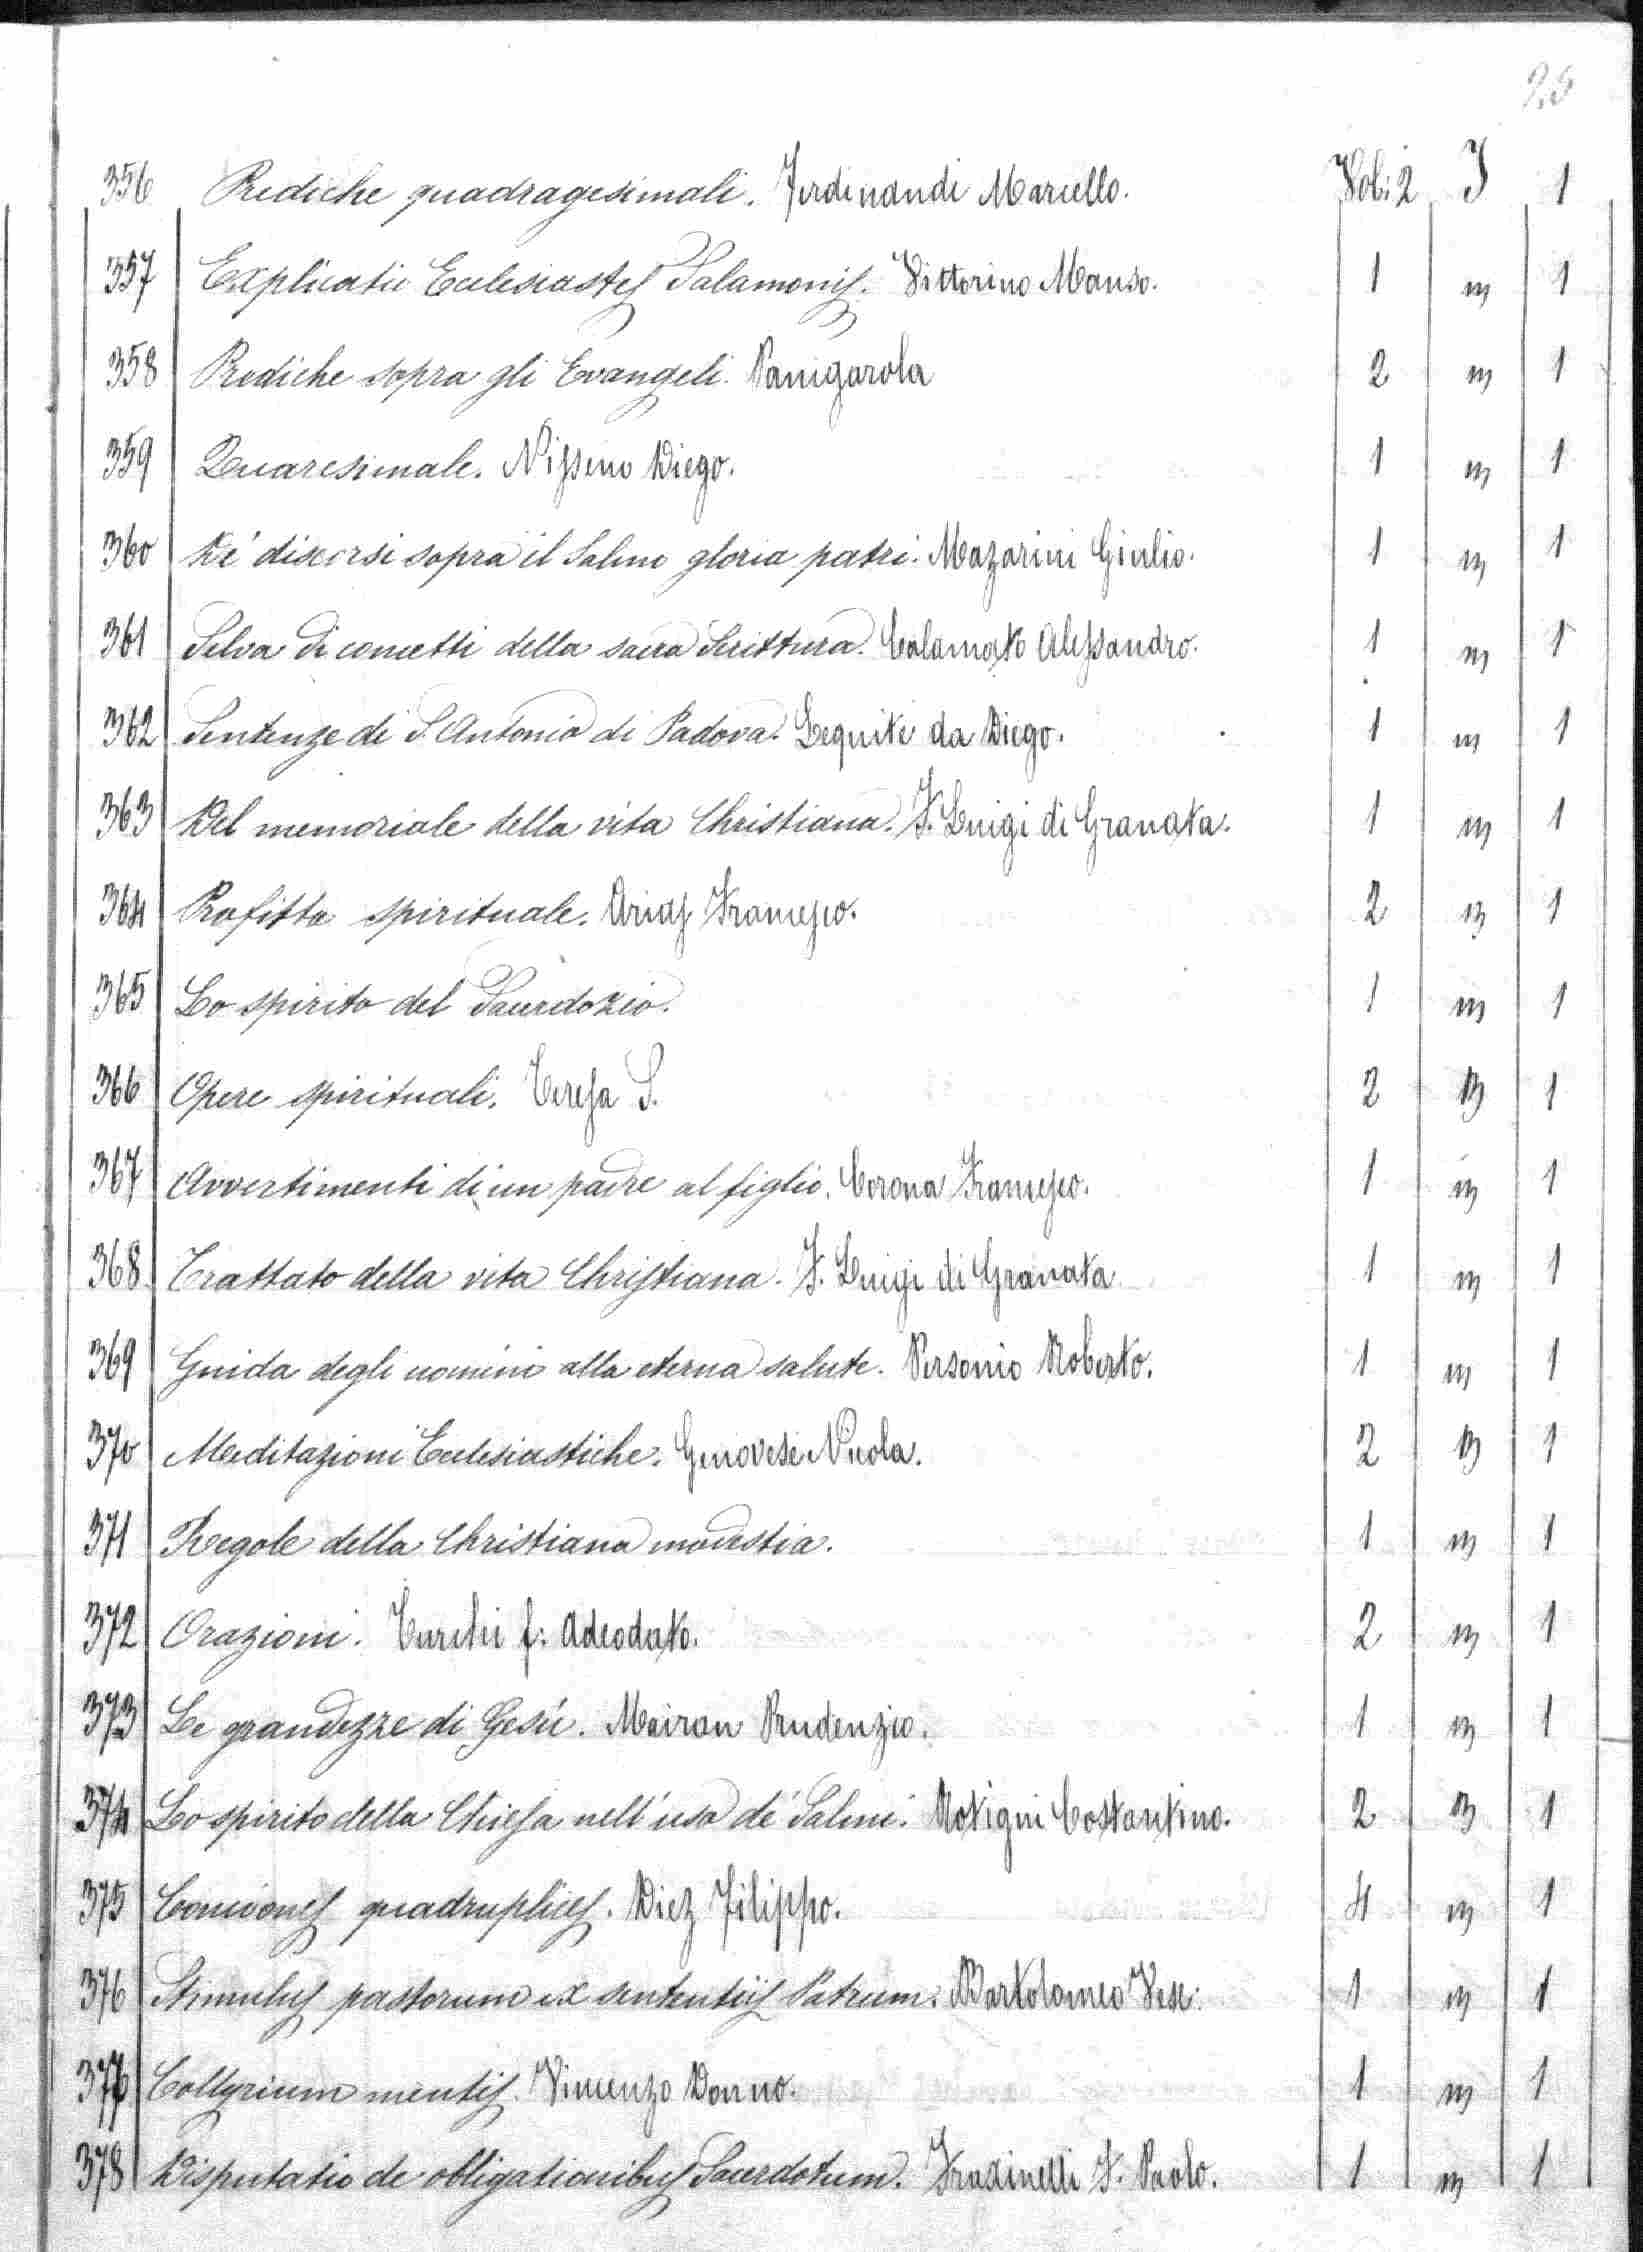 25
356 Prediche quadragesimali. Ferdinandi Marcello. Vol: 2 I 1
357 Explicatio Ecclesiastes Salamonis. Vittorino Manso. 1 m 1
358 Prediche sopra gli Evangeli. Panigarola 2 m 1
359 Quaresimale. Nisseno Diego. 1 m 1
360 De' discorsi sopra il Salmo gloria patri. Mazarini Giulio. 1 m 1
361 Selva di concetti della sacra Scrittura. Calamato Alessandro. 1 m 1
362 Sentenze di S. Antonio di Padova. Lequile da Diego. 1 m 1
363 Del memoriale della vita Christiana. F. Luigi di Granata. 1 m 1
364 Profitto spirituale. Arias Francesco. 2 m 1
365 Lo spirito del Sacerdozio. 1 m 1
366 Opere spirituali. Teresa S. 2 m 1
367 Avvertimenti di un padre al figlio. Corona Francesco. 1 m 1
368 Trattato della vita Christiana. F. Luigi di Granata 1 m 1
369 Guida degli uomini alla eterna salute. Personio Roberto. 1 m 1
370 Meditazioni Ecclesiastiche. Genovese Nicola. 2 m 1
371 Regole della Christiana modestia. 1 m 1
372 Orazioni. Turchi f: Adeodato. 2 m 1
373 Le grandezze di Gesù. Mairon Prudenzio. 1 m 1
374 Lo spirito della Chiesa nell'uso de' Salmi. Rotigni Costantino. 2 m 1
375 Conciones quadruplices. Diez Filippo. 4 m 1
376 Stimulus pastorum ex sententiis Patrum. Bartolomeo Vesc: 1 m 1
377 Collyrium mentis. Vincenzo Donno. 1 m 1
378 Disputatio de obligationibus Sacerdotum. Fraxinelli F. Paolo. 1 m 1